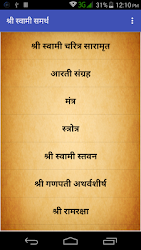 3G 31% 12:10 PM
श्री स्वामी समर्थ
श्री स्वामी चरित्र सारामृत
आरती संग्रह
मंत्र
स्त्रोत्र
श्री स्वामी स्तवन
श्री गणपती अथर्वशीर्ष
श्री रामरक्षा